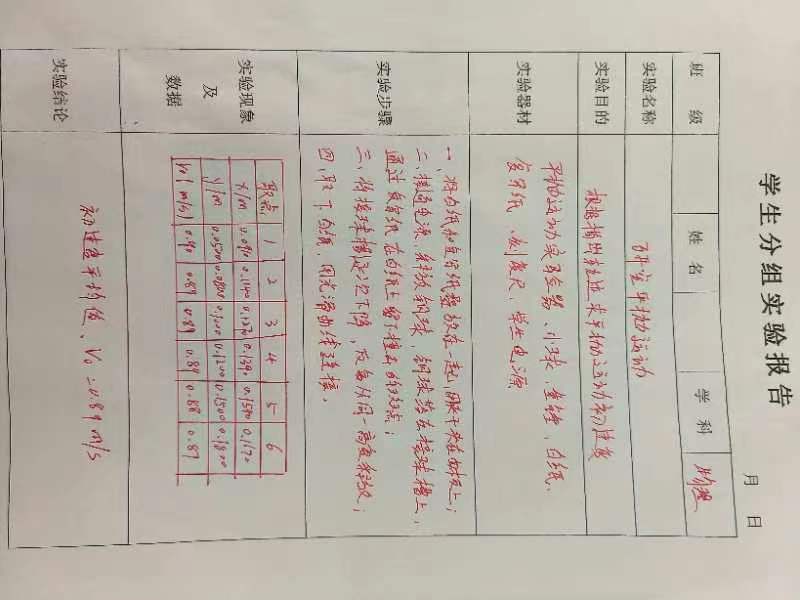 学生分组实验报告
月 日
班级 姓名 学科 物理
实验名称 研究平抛运动
实验目的 根据描出轨迹求平抛运动初速度
实验器材 平抛运动实验器、小球、重锤、白纸、
复写纸、刻度尺、学生电源
实验步骤 一、将白纸和复写纸叠放在一起,固定在面板上;
二、接通电源,释放钢球,钢球落在接球槽上,
通过复写纸在白纸上留下撞击的痕点;
三、将接球槽逐次下降,反复从同一高度释放;
四、取下白纸,用光滑曲线连接。
实验现象
及
数据
取点 1 2 3 4 5 6
x/m 0.090 0.1590 0.1170
y/m 0.0500 0.0800 0.1200 0.1500 0.1800
V0(m/s) 0.90 0.89 0.89 0.89 0.88 0.87
实验结论 初速度平均值、V0=0.89m/s